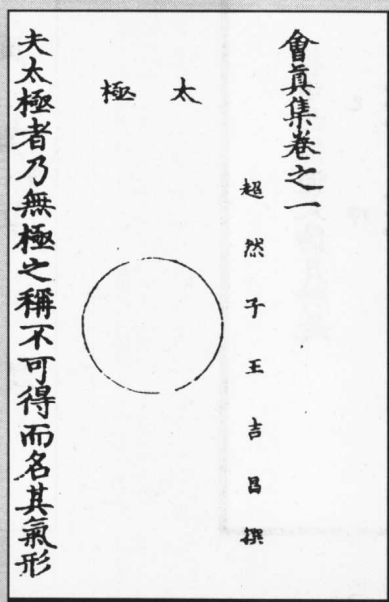 會真集卷之一
超然子王吉昌撰
太極
夫太極者乃無極之稱不可得而名其氣形